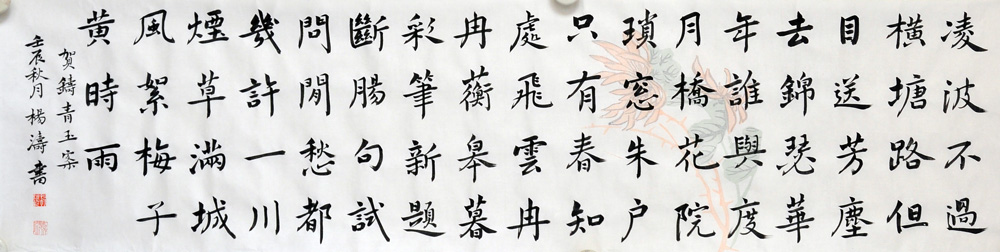 凌波不過
橫塘路但
目送芳塵
去錦瑟華
年誰與度
月橋花院
瑣窓朱户
只有春知
處飛雲冉
冉蘅皋暮
彩筆新題
斷腸句試
問閒愁都
幾許一川
煙草滿城
風絮梅子
黄時雨
賀鑄青玉案
壬辰秋月楊濤書